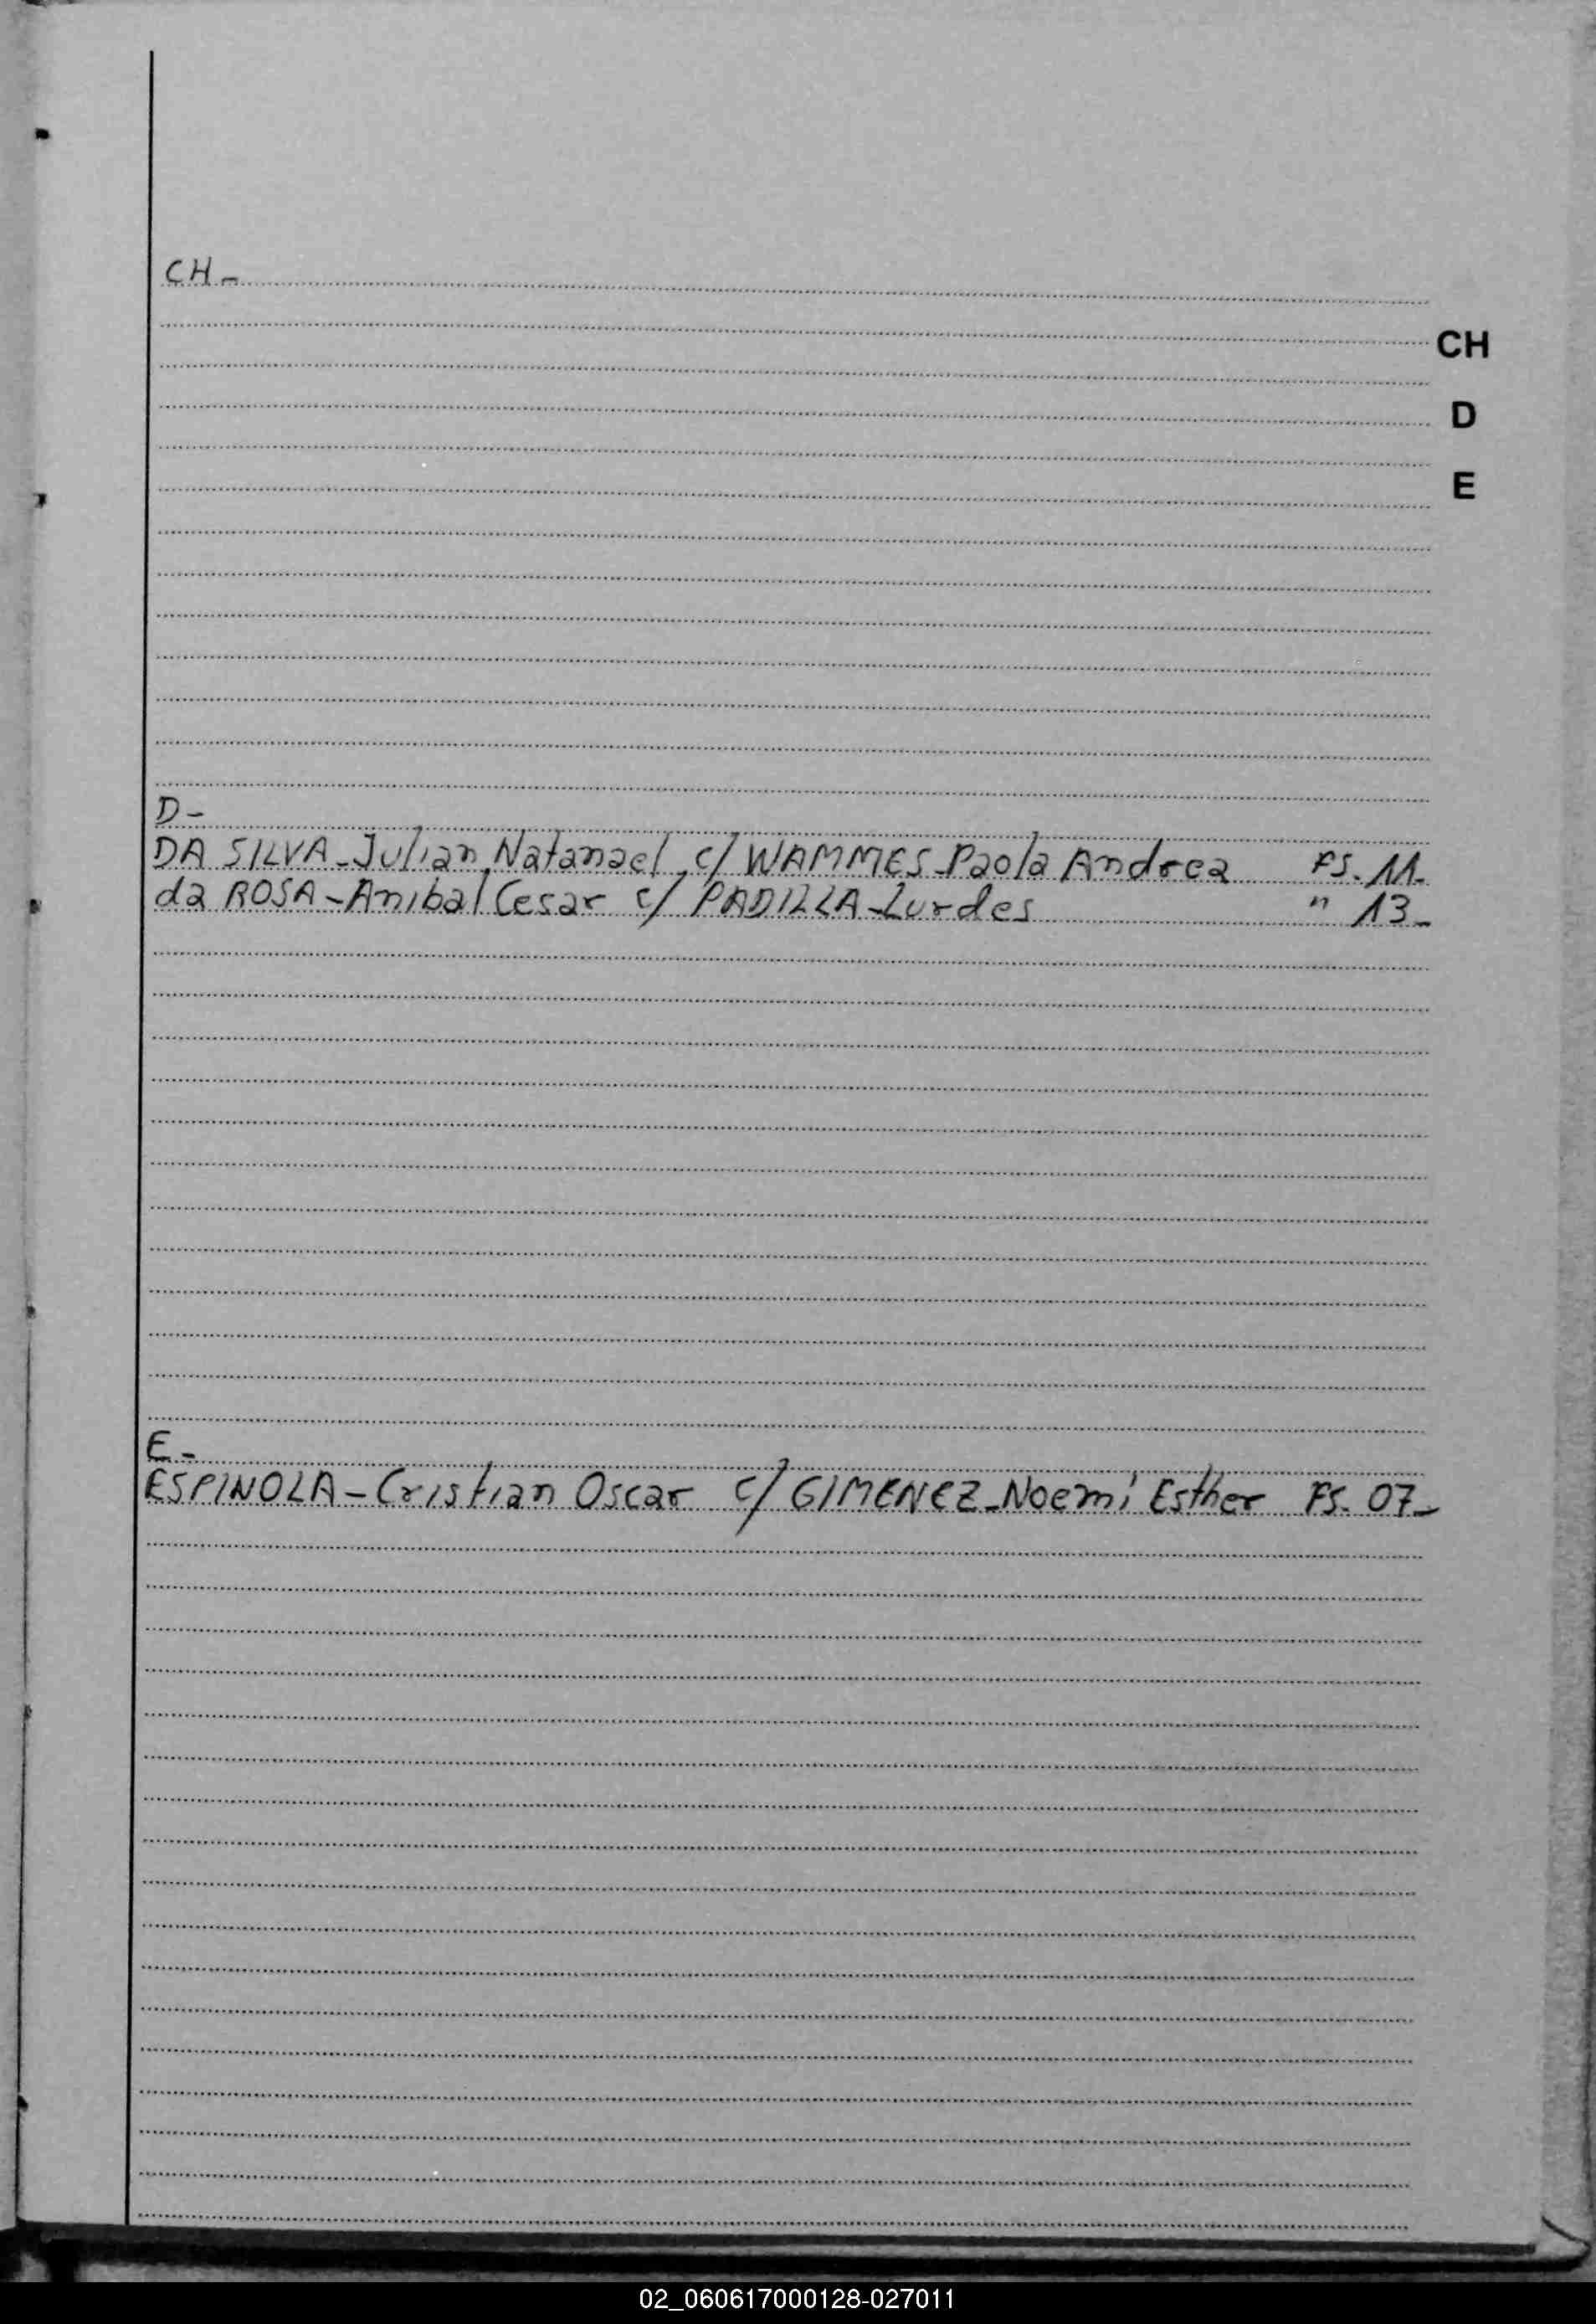 CH-
CH
D
E
D-
DA SILVA-Julian Natanael c/ WAMMES-Paola Andrea FS. 11.
da ROSA-Anibal Cesar c/ PADILLA-Lurdes " 13-
E-
ESPINOLA-Cristian Oscar c/ GIMENEZ-Noemi Esther FS. 07-
02_060617000128-027011